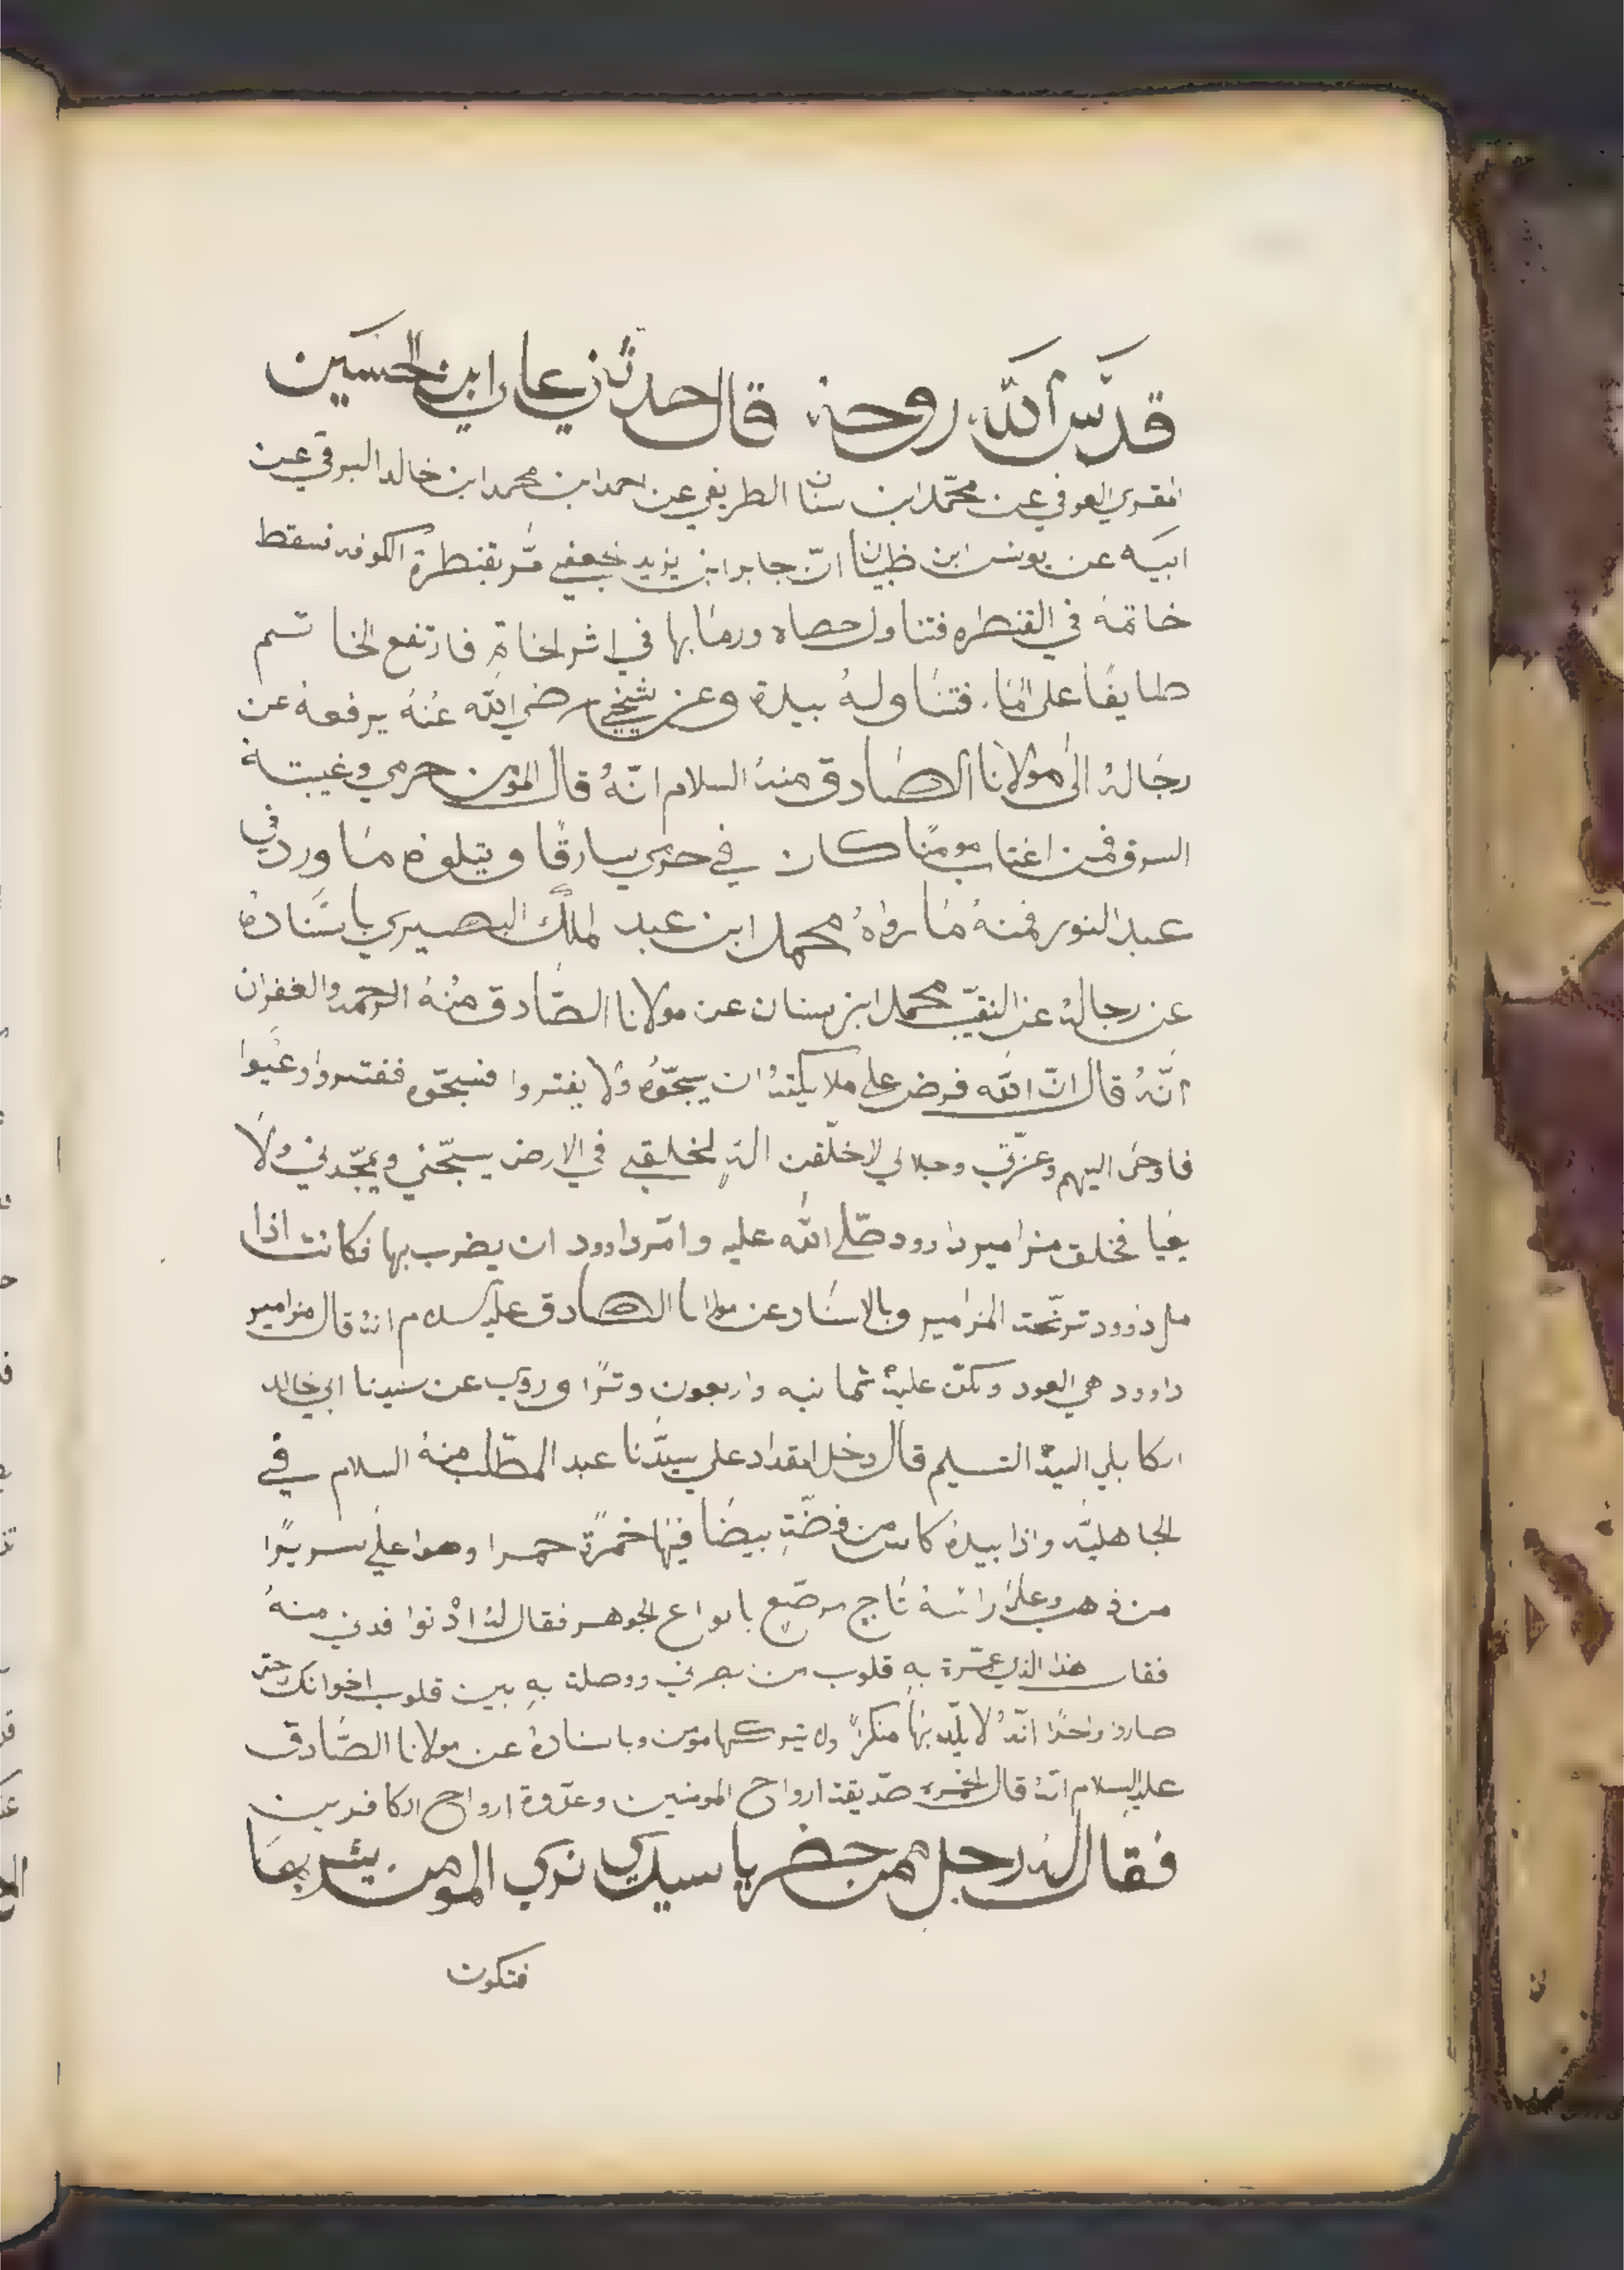 قدّس الله روحه قال حدثني علي ابن الحسين
المقري العوفي عن محمّد ابن سنان عن احمد ابن محمد ابن خالد البرقي عن
ابيه عن يونس ابن ظبيان انّ جابر ابن يزيد مّر بقنطرة الكوفه فسقط
خاتمه في القنطره فتناول حصاه ورما بها في اثر الخاتم فارتفع الخاتم
طايفًا على الماء فتناوله بيدة وعن شيخي رضي الله عنه يرفعه عن
رجاله الى مولانا الصادق منه السلام انّه قال المؤمن حرمي وغيبته
السرق فمن اغتاب مومنًا كان في حرمي سارقًا ويتلوه ما ورد في
عبد النور فمنه ما رواهُ محمد ابن عبد الملك البصيري باسنادهُ
عن رجاله عن محمد ابن سنان عن مولانا الصّادق منهُ الرحمه والغفران
انّهُ قال انّ الله فرض على ملايكته ان يسبحّوهُ ولا يفتروا فسبحّوه ففتروا وعيوا
فاوحى اليهم وعزّتي وجلالي لاخلّقن في الارض يسبّحني ويمجّدني ولا
يعيا فخلق مزامير داوود صلّى الله عليه وامّر داوود ان يضرب بها فكانت اذا
ترنّحت المزامير وبالاسناد عن مولانا الصادق عليه السلام انه قال مزامير
داوود هي العود عليهُ ثمانيه واربعون وترًا وروي عن سيدنا ابي خالد
الكابلي اليهُ التسليم قال دخل المقداد على سيدّنا عبد المطّلب منهُ السلام في
الجاهليّه واذا بيدهُ كاس من فضّةٍ بيضا فيها خمرًة حمرا وهوا على سريرًا
من ذهب وعلى راسهُ تاج مرصّع بانواع الجوهر فقال لهُ ادْنوا فدني منهُ
فقال هذا الذي به قلوب من ووصلة به بين قلوب اخوانك حتى
صارو واحدًا انّهُ لا منكرًا ولا يتركها مومن وباسنادهُ عن مولانا الصّادق
عليه السلام انّهُ قال الخمره صدّيقة ارواح المومنين وعدّوة ارواح الكافرين
فقال لهُ رجل ممن حضر يا سيدي نري المومن يشربها
فتكون